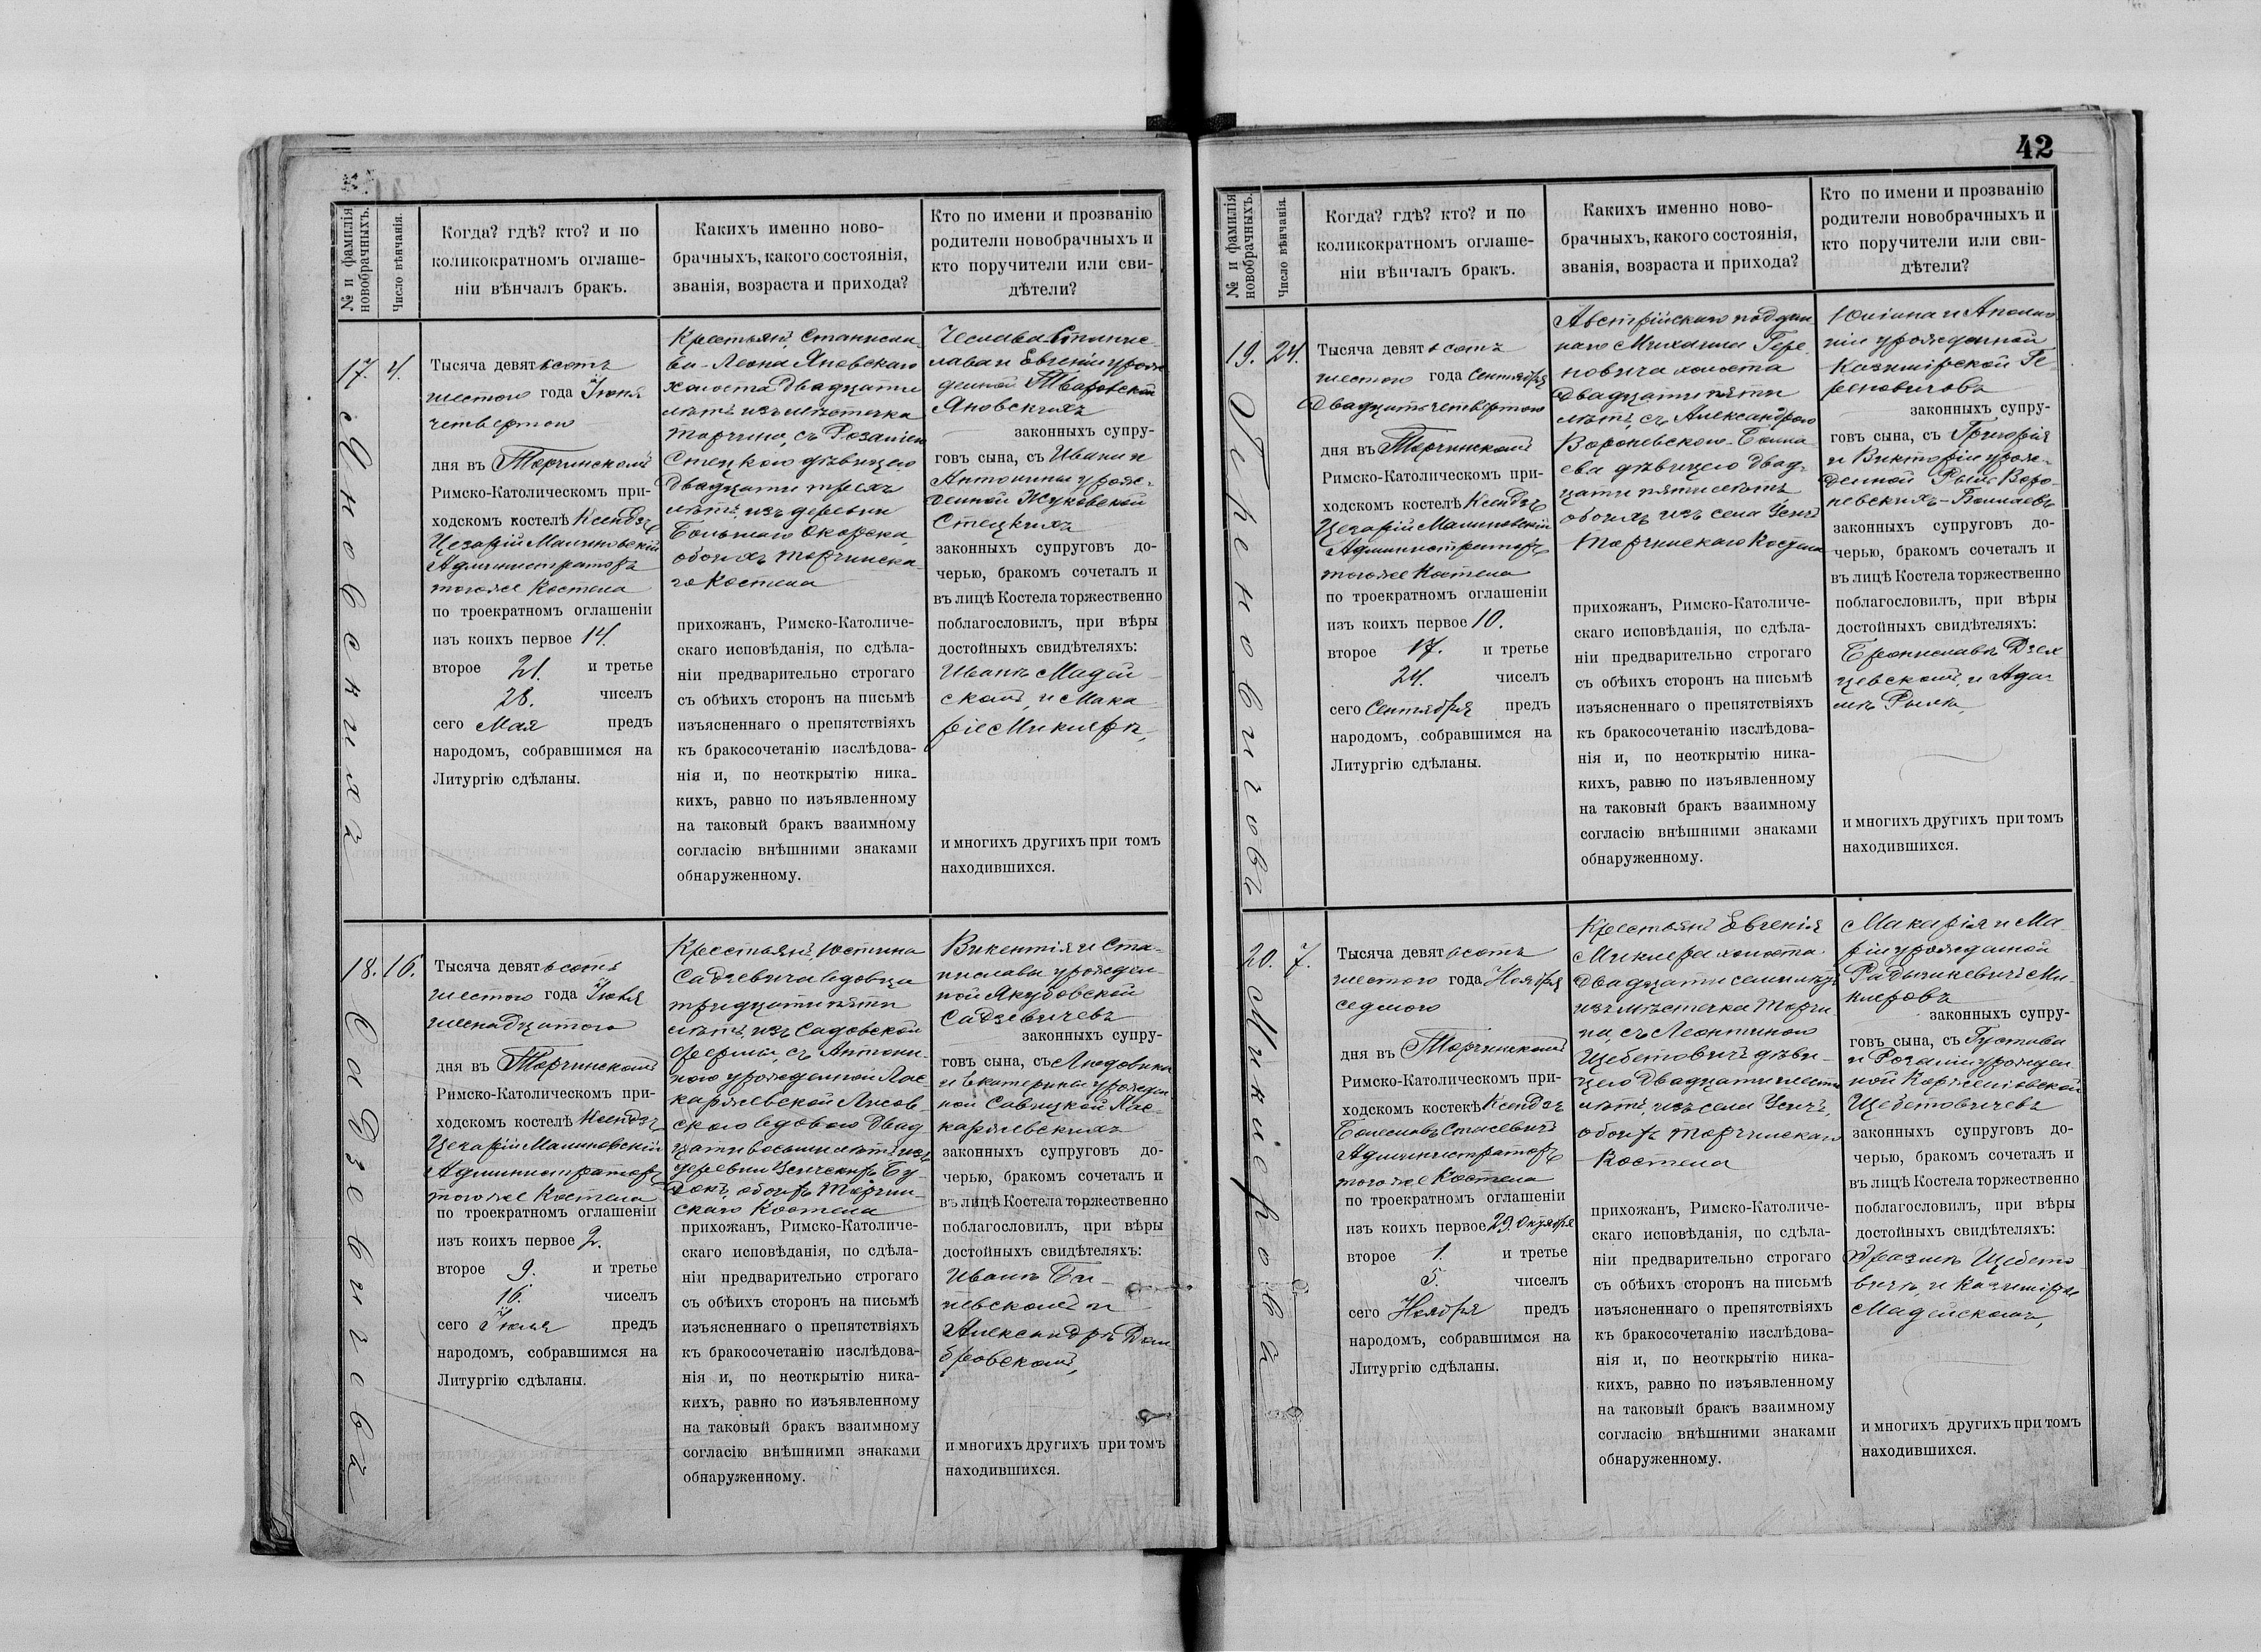 № и фамилія
новобрачныхъ.
Число вѣнчанія.
Когда? гдѣ? кто? и по
коликократномъ оглаше-
ніи вѣнчалъ бракъ.
Какихъ именно ново-
брачныхъ, какого состоянія,
званія, возраста и прихода?
Кто по имени и прозванію
родители новобрачныхъ и
кто поручители или сви-
дѣтели?
17.
Яновскихъ
4.
Тысяча девятьсотъ
шестого года Іюня
четвертого
дня въ Торчинскомъ
Римско-Католическомъ при-
ходскомъ костелѣ Ксендзъ
Цезарій Малиновскій
Администраторъ
тогоже Костела
по троекратномъ оглашеніи
изъ коихъ первое 14.
второе 21. и третье
28. чиселъ
сего Мая предъ
народомъ, собравшимся на
Литургію сдѣланы.
Крестьянъ, Станисла-
ва-Леона Яновскаго
холоста двадцати
лѣтъ изъ мѣстечка
Торчина, съ Розаліею
Стецкою дѣвицею
двадцати трехъ
лѣтъ, изъ деревни
Большаго Окорска
обоихъ Торчинска-
го Костела
прихожанъ, Римско-Католиче-
скаго исповѣданія, по сдѣла-
ніи предварительно строгаго
съ обѣихъ сторонъ на письмѣ
изъясненнаго о препятствіяхъ
къ бракосочетанію изслѣдова-
нія и, по неоткрытію ника-
кихъ, равно по изъявленному
на таковый бракъ взаимному
согласію внѣшними знаками
обнаруженному.
Чеслава Станис-
лава и Евгеніи урож-
денной
Яновскихъ
законныхъ супру-
говъ сына, съ Ивана и
Антонины урож-
денной Жуковской
Стецкихъ
законныхъ супруговъ до-
черью, бракомъ сочеталъ и
въ лицѣ Костела торжественно
поблагословилъ, при вѣры
достойныхъ свидѣтеляхъ:
Иванъ Мадей-
скомъ, и Мака-
ріе Миклеръ,
и многихъ другихъ при томъ
находившихся.
18.
Садзевичевъ
16.
Тысяча девятьсотъ
шестого года Іюля
шестнадцатого
дня въ Торчинскомъ
Римско-Католическомъ при-
ходскомъ костелѣ Ксендзъ
Цезарій Малиновскій
Администраторъ
тогоже Костела
по троекратномъ оглашеніи
изъ коихъ первое 2.
второе 9. и третье
16. чиселъ
сего Іюля предъ
народомъ, собравшимся на
Литургію сдѣланы.
Крестьянъ, Юстина
Садзевича вдовца
тридцати пяти
лѣтъ, изъ Садовской
фермы, съ Антони-
ною урожденной Лас-
каржевской Лисов-
скою вдовою двад-
цати восьми лѣтъ изъ
деревни Усичскихъ Бу-
докъ, обоихъ Торчин-
скаго Костела
прихожанъ, Римско-Католиче-
скаго исповѣданія, по сдѣла-
ніи предварительно строгаго
съ обѣихъ сторонъ на письмѣ
изъясненнаго о препятствіяхъ
къ бракосочетанію изслѣдова-
нія и, по неоткрытію ника-
кихъ, равно по изъявленному
на таковый бракъ взаимному
согласію внѣшними знаками
обнаруженному.
Викентія и Ста-
ниславы урожден-
ной Якубовской
Садзевичевъ
законныхъ супру-
говъ сына, съ Людовика
и Екатерины урожден-
ной Савицкой Лас-
каржевскихъ
законныхъ супруговъ до-
черью, бракомъ сочеталъ и
въ лицѣ Костела торжественно
поблагословилъ, при вѣры
достойныхъ свидѣтеляхъ:
Иванъ
и
Александръ Дом-
бровскомъ,
и многихъ другихъ при томъ
находившихся.
42
№ и фамилія
новобрачныхъ.
Число вѣнчанія.
Когда? гдѣ? кто? и по
коликократномъ оглаше-
ніи вѣнчалъ бракъ.
Какихъ именно ново-
брачныхъ, какого состоянія,
званія, возраста и прихода?
Кто по имени и прозванію
родители новобрачныхъ и
кто поручители или сви-
дѣтели?
19.
Гереновичовъ
24.
Тысяча девятьсотъ
шестого года Сентября
двадцать четвертого
дня въ Торчинскомъ
Римско-Католическомъ при-
ходскомъ костелѣ Ксендзъ
Цезарій Малиновскій
Администраторъ
тогоже Костела
по троекратномъ оглашеніи
изъ коихъ первое 10.
второе 17. и третье
24. чиселъ
сего Сентября предъ
народомъ, собравшимся на
Литургію сдѣланы.
Австрійскаго поддан-
наго Михаила Гере-
новича холоста
двадцати пяти
лѣтъ, съ Александрою
Вороневскою-
дѣвицею двад-
цати пяти лѣтъ
обоихъ изъ села Усичъ
Торчинскаго Костела
прихожанъ, Римско-Католиче-
скаго исповѣданія, по сдѣла-
ніи предварительно строгаго
съ обѣихъ сторонъ на письмѣ
изъясненнаго о препятствіяхъ
къ бракосочетанію изслѣдова-
нія и, по неоткрытію ника-
кихъ, равно по изъявленному
на таковый бракъ взаимному
согласію внѣшними знаками
обнаруженному.
Юліана и Аполло-
ніи урожденной
Казимірской Ге-
реновичовъ
законныхъ супру-
говъ сына, съ Григорія
и Викторіи урож-
денной Рыль Воро-
невскихъ-
законныхъ супруговъ до-
черью, бракомъ сочеталъ и
въ лицѣ Костела торжественно
поблагословилъ, при вѣры
достойныхъ свидѣтеляхъ:
Брониславъ
и Ада-
мъ
и многихъ другихъ при томъ
находившихся.
20.
Миклерова
7.
Тысяча девятьсотъ
шестого года Ноября
седмого
дня въ Торчинскомъ
Римско-Католическомъ при-
ходскомъ костекѣ Ксендзъ
Болеславъ Стасевичъ
Администраторъ
тогоже Костела
по троекратномъ оглашеніи
изъ коихъ первое 29. Октября
второе 1. и третье
5. чиселъ
сего Ноября предъ
народомъ, собравшимся на
Литургію сдѣланы.
Крестьянъ Евгенія
Миклера холоста
двадцати семи лѣтъ
изъ мѣстечка Торчи-
на, съ Леонтиною
Щебетовичъ дѣви-
цею двадцати шести
лѣтъ, изъ села Усичъ,
обоихъ Торчинскаго
Костела
прихожанъ, Римско-Католиче-
скаго исповѣданія, по сдѣла-
ніи предварительно строгаго
съ обѣихъ сторонъ на письмѣ
изъясненнаго о препятствіяхъ
къ бракосочетанію изслѣдова-
нія и, по неоткрытію ника-
кихъ, равно по изъявленному
на таковый бракъ взаимному
согласію внѣшними знаками
обнаруженному.
Макарія и Ма-
ріи урожденной
Ми-
клеровъ
законныхъ супру-
говъ сына, съ Густава
и Розаліи урожден-
ной
Щебетовичевъ
законныхъ супруговъ до-
черью, бракомъ сочеталъ и
въ лицѣ Костела торжественно
поблагословилъ, при вѣры
достойныхъ свидѣтеляхъ:
Щебето-
вичъ и Казиміръ
Мадейскомъ,
и многихъ другихъ при томъ
находившихся.